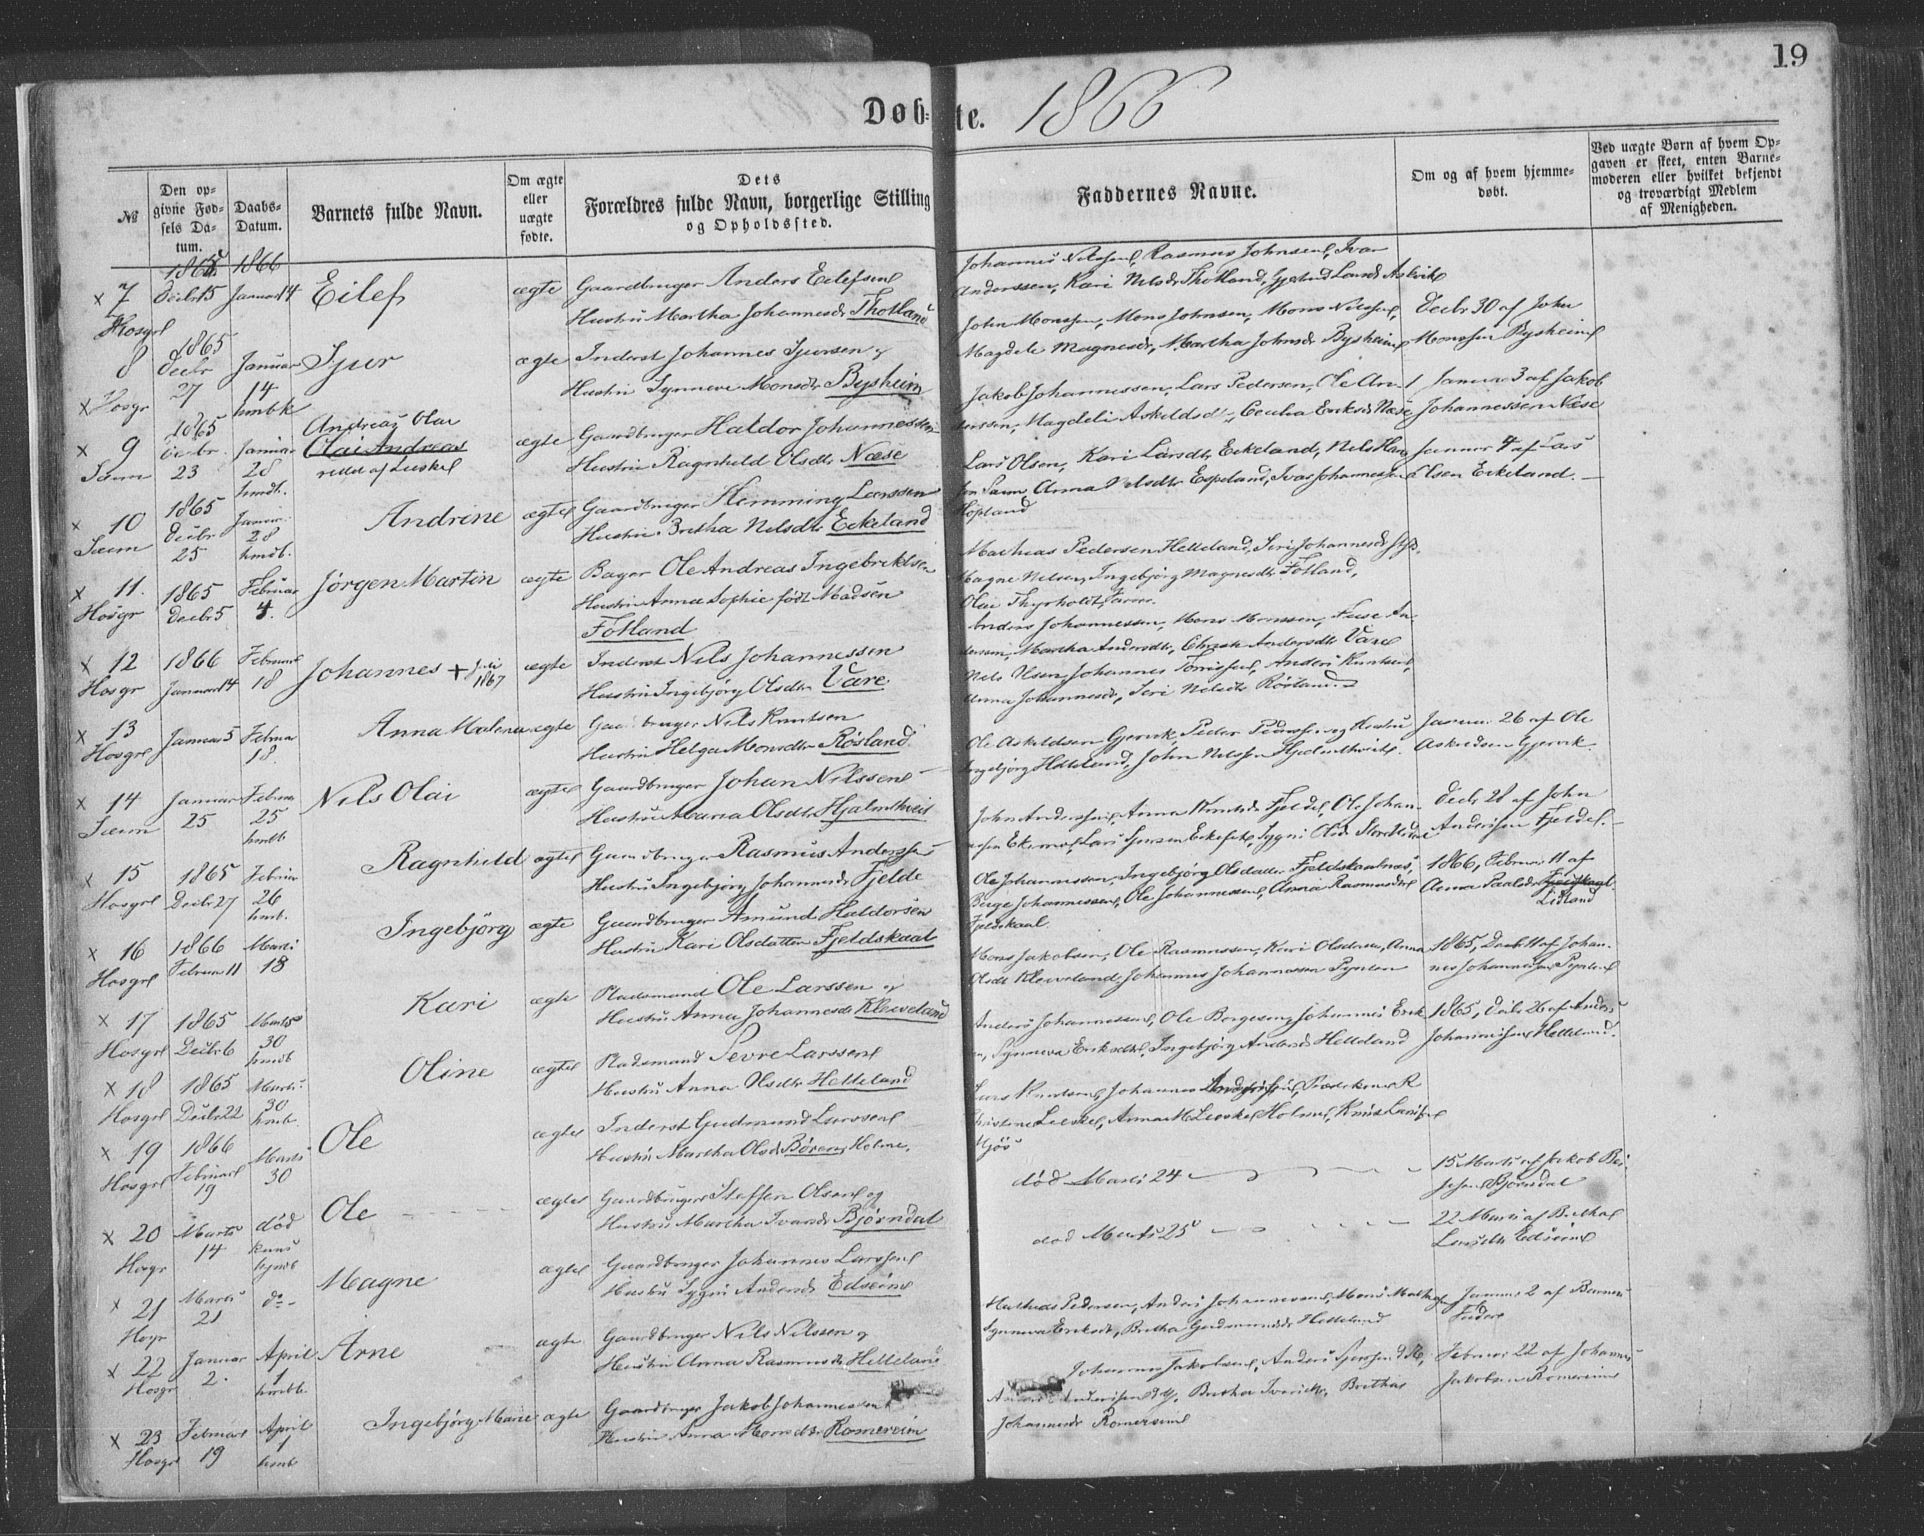 19
Døbte. 1866
№
Den opgivne Fødsels Datum.
Daabs-Datum.
Barnets fulde Navn.
Om ægte eller uægte fødte.
Dets Forældres fulde Navn, borgerlige Stilling og Opholdssted.
Faddernes Navne.
Om og af hvem hjemmedøbt.
Ved uægte Børn af hvem Opgaven er skeet, enten Barnemoderen eller hvilket bekjendt og troværdigt Medlem af Menigheden.
1865 1866
x 7 Decbr 15 Januar 14 Eilef ægte Gaardbruger Anders Eilefsen
Hosgr Hustru Martha Johannesdr Thotland
Johannes Nilssen, Rasmus Johnsen, Ivar
Anderssen, Kari Nilsdr Thotland, Larsdr Askvik
1865
8 Decbr 27 Januar 14 hmbk Sjur ægte Inderst Johannes Sjursen og
x Hosgr Hustru Synneve Monsdr Bysheim
John Monssen, Mons Johnsen, Mons Nilssen,
Magdele Magnesdr, Martha Johnsdr Bysheim
Decbr 30 af John
Monssen Bysheim
1865
x 9 Decbr 23 Januar 28 hmdt. Andreas Olai
Olai Andreas
rettet af
Sæm
ægte Gaardbruger Haldor Johannessen
Hustru Ragnhild Olsdtr Næse
Jakob Johannessen, Lars Pedersen, Ole An-
derssen, Magdeli Askildsdr, Cecilia Eriksdr Næse
Januar 3 af Jakob
Johannessen Næse
1865
x 10 Decbr 25 Januar 28 hmdt. Andrine ægte Gaardbruger Hemming Larssen
Sæm Hustru Bretha Nilsdtr Eekeland
Lars Olsen, Kari Larsdtr Eekeland, Nils Han
sen Sæm, Anna Nilsdtr Espeland, Ivar Johannessen
Hopland
Januar 4 af Lars
Olsen Eekeland.
x 11. 1865 Decbr 5 Februar 4. Jørgen Martin ægte Bager Ole Andreas Ingebriktsen
Hosgr Hustru Anna Sophie født Madsen
Fotland
Mathias Pedersen Helleland, Siri Johannesdr
Magne Nilsen, Ingebjørg Magnesdtr Fotland,
Olai Thyrholdt,
x 12 1866 Januar 14 Februar 18 Johannes + Juli 1867 ægte Inderst Nils Johannessen
Hosgr Hustru Ingebjørg Olsdtr Våre
Anders Johannessen, Mons Monssen, An-
derssen, Martha Andersdtr, Andersdtr Våre
x 13 Januar 5 Februar 18. Anna Malena ægte Gaardbruger Nils Knutsen
Hosgrd Hustru Helga Monsdtr Røsland
Nils Olsen, Johannes Tomassen, Anders Knutsen,
Anna Johannesdr, Siri Nilsdtr Røsland
x 14 Januar 25 Februar 25 hmdt Nils Olai ægte Gaardbruger Johan Nilssen
Sæm Hustru Maria Olsdtr Hjalmtveit
Ole Askildsen Gjervik, Peder Pedersen og Hustru
Ingebjørg Helleland, John Nilssen Hjalmtveit.
Januar 26 af Ole
Askildsen Gjervik.
x 15 1865 Decbr 27 Februar 26 hmb. Ragnhild ægte Gaardbruger Rasmus Anderssen
Hosgrd Hustru Ingebjørg Johannesdr Fjelde
John Anderssen, Anna Knutsdr Fjelde, Ole Johan-
nesen Ekemo, Lars Sjursen, Sygni Olsdr
Decbr 28 af John
Anderssen Fjelde.
x 16 1866 Februar 11 Marts 18 Ingebjørg ægte Gaardbruger Amund Haldorsen
Hosgrd Hustru Kari Olsdatter Fjeldskaal
Ole Johannessen, Ingebjørg Olsdatter Fjeldskaalnæs,
Børge Johannessen, Ole Johannessen, Anna Rasmusdtr
Fjeldskaal
1866, Februar 11 af
Anna Paalsdr Fjeldskaal
Lidland
x 17 1865 Decbr 6 Marts 30 hmdt Kari ægte Pladsmand Ole Larssen og
Hosgrd Hustru Anna Johannesdr Kleiveland
Mons Jakobsen, Ole Rasmussen, Kari Olsdr, Anna
Olsdr Kleiveland, Johannes Johannessen
1865, Decbr 11 af Johan-
nes Johannessen
x 18 1865 Decbr 22 Marts 30 hmb. Oline ægte Pladsmand Sevre Larssen
Hosgrd Hustru Anna Olsdtr Helleland
Anders Johannessen, Ole Børgesen, Johannes Erik
sen, Synneva Eriksdtr, Ingebjørg Andersdr Helleland
1865, Decbr 26 af Anders
Johannessen Helleland.
x 19 1866 Februar 19 Marts 30 Ole ægte Inderst Gudmund Larssen
Hosgrd Hustru Martha Olsdr Børøen, Holme.
Lars Knutsen, Johannes Anderssen,
Holme, Knut Larssen
x 20 Marts 14 død kuns hjmdt Ole ægte Gaardbruger Steffen Olsen og
Hosgr Hustru Martha Ivarsdr Bjørndal
død Marts 24
15 Marts af Jakob
Bjørndal
x 21 Marts 21 do Magne ægte Gaardbruger Johannes Larssen
Hosgr Hustru Sygni Andersdr Edseim
død Marts 25
22 Marts af Bretha
Larsdtr Edseim
x 22 Januar 2. April 1 hmdt. Arne ægte Gaardbruger Nils Nilssen og
Hosgr Hustru Anna Rasmusdr Helleland
Mathias Pedersen, Anders Johannessen, Mons
Synneva Eriksdr, Bretha Gudmundsdr Helleland
Januar 2 af Barnets
Fader
x 23 Februar 19 April 1 hmdt Ingebjørg Marie ægte Gaardbruger Jakob Johannessen
Hosgrd Hustru Anna Monsdtr Romereim
Johannes Jakobsen, Anders Sjursen
Anderssen, Bretha Iversdtr, Brithe
Johannesdr Romereim
Februar 22 af Johannes
Jakobsen Romereim